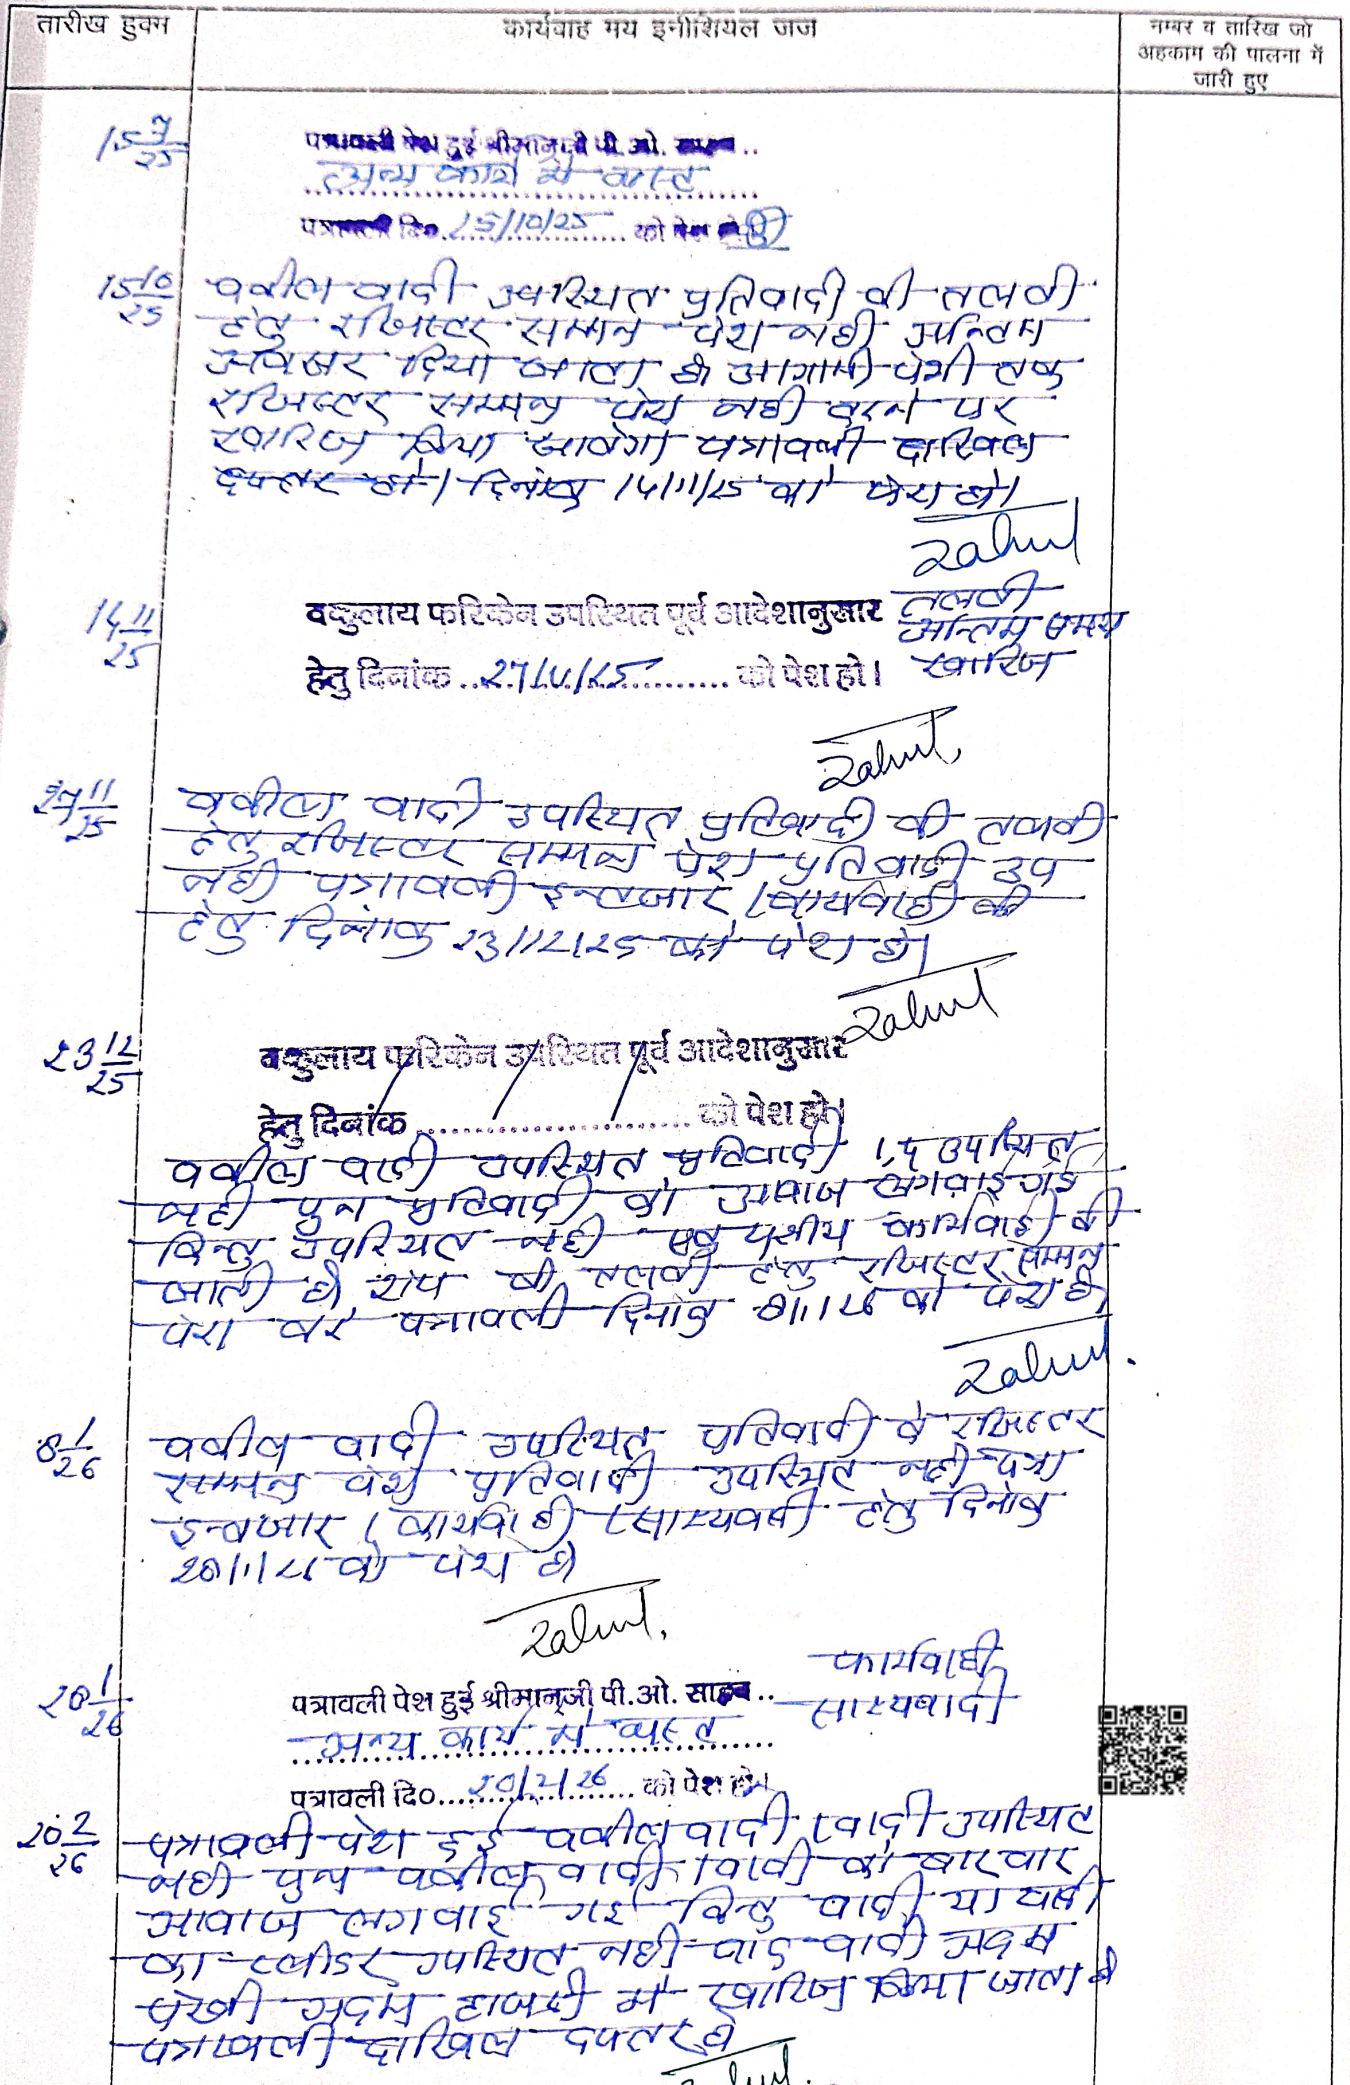 तारीख हुक्म
कार्यवाह मय इनीशियल जज
नम्बर व तारिख जो
अहकाम की पालना में
जारी हुए
15 7/25
पत्रावली पेश हुई श्रीमान्‌जी पी.ओ. साहब..
अन्य कार्य में व्यस्त
पत्रावली दि०.15/10/25 को पेश हो
15 10/25
वकील वादी उपस्थित प्रतिवादी की तलबी
हेतु रजिस्टर सम्मन पेश नही अन्तिम
अवसर दिया जाता है आगामी पेशी तक
रजिस्टर सम्मन पेश नही करने पर
खारिज किया जावेगा पत्रावली दाखिल
दफ्तर हो। दिनांक 14/11/25 को पेश हो।
Rahul
14 11/25
वकुलाय फरिकेन उपस्थित पूर्व आदेशानुसार
तलबी
अन्तिम समय
हेतु दिनांक ..27/11/25.. को पेश हो।
खारिज
Rahul
27 11/25
वकील वादी उपस्थित प्रतिवादी की तलबी
हेतु रजिस्टर सम्मन पेश प्रतिवादी उप
नही पत्रावली इन्तजार/कार्यवाही की
हेतु दिनांक 23/12/25 को पेश हो।
Rahul
23 12/25
वकुलाय फरिकेन उपस्थित पूर्व आदेशानुसार
हेतु दिनांक ........................... को पेश हो।
वकील वादी उपस्थित प्रतिवादी उपस्थित
नही पुन प्रतिवादी को आवाज लगवाई गई
किन्तु उपस्थित नही एक पक्षीय कार्यवाही की
जाती है शेष की तलबी हेतु रजिस्टर सम्मन
पेश करे पत्रावली दिनांक 8/1/26 को पेश हो
Rahul.
8 1/26
वकील वादी उपस्थित प्रतिवादी के रजिस्टर
सम्मन पेश प्रतिवादी उपस्थित नही पत्रा
इन्तजार/कार्यवाही/साक्ष्यवादी हेतु दिनांक
28/1/26 को पेश हो
Rahul.
28 1/26
कार्यवाही
पत्रावली पेश हुई श्रीमान्‌जी पी.ओ. साहब..
साक्ष्यवादी
अन्य कार्य में व्यस्त
पत्रावली दि०...20/2/26... को पेश हो।
20 2/26
पत्रावली पेश हुई वकील वादी/वादी उपस्थित
नही पुन वकील वादी/वादी को बारबार
आवाज लगवाई गई किन्तु वादी या वादी
का प्लीडर उपस्थित नही वाद वादी अदम
पेरवी अदम हाजरी में खारिज किया जाता है
पत्रावली दाखिल दफ्तर हो
Rahul.